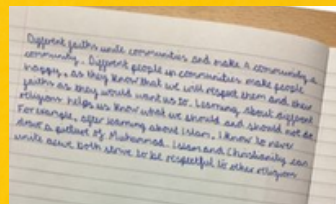 Different faiths unite communities and make A community, a
community. Different people in communities make people
happy, as they know that we will respect them and their
faiths as they would want us to. Learning about different
religions helps us know what we should and should not do.
For example, after learning about Islam, I know to never
draw a picture of Muhammad. Islam and Christianity can
unite as we both strive to be respectful to other religions